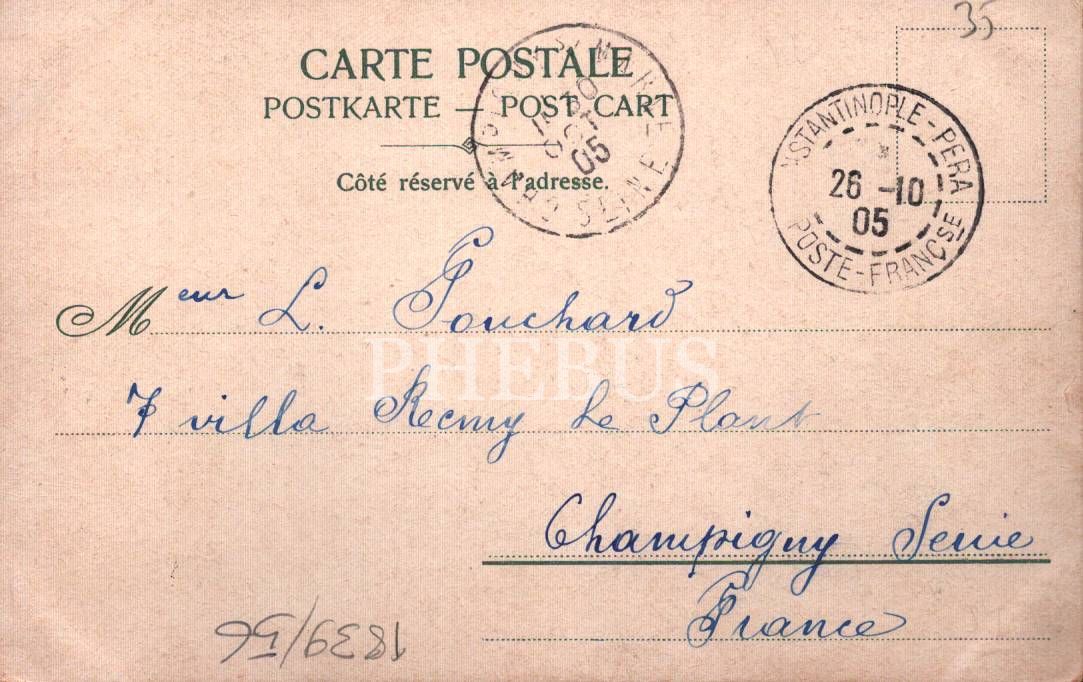 35
CARTE POSTALE
POSTKARTE — POST CART
Côté réservé à l'adresse.
CHAMPIGNY S MARNE
SEINE
30
05
NSTANTINOPLE - PERA
26 -10
05
POSTE - FRANÇSE
Meur L. Pouchard
PHEBUS
7 villa Remy
Le Plant
Champigny Seine
France
1839/56